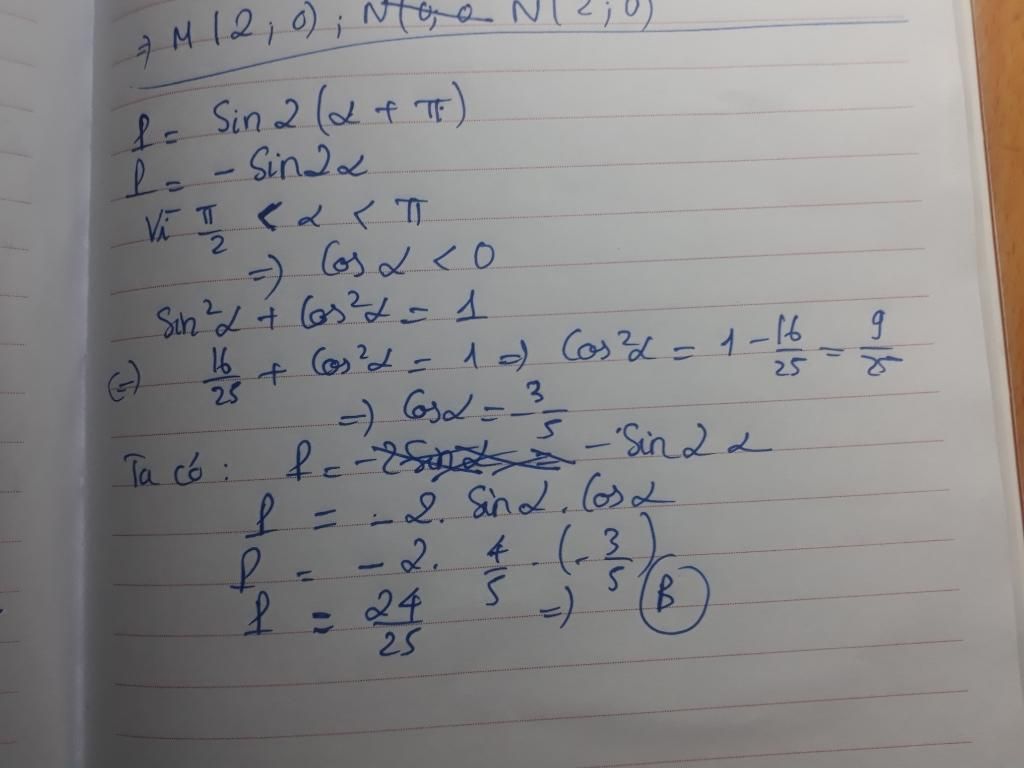 ⇒ M(2;0); N(2;0)
P = Sin2(α + π)
P = - Sin2α
Vì π/2 < α < π
=) Cos α < 0
Sin²α + Cos²α = 1
(=) 16/25 + Cos²α = 1 =) Cos²α = 1 - 16/25 = 9/25
=) Cosα = -3/5
Ta có: P = - Sin2α
P = - 2. Sinα. Cosα
P = - 2. 4/5 . (-3/5)
P = 24/25 =) B